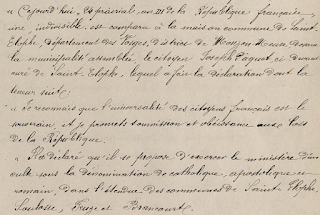 « Cejourd'hui, prairial, an III de la République française,
une, indivisible, est comparu à la maison commune de Saint-
Elophe, département des Vosges, district de Mouzon-Meuse, devant
la municipalité assemblée, le citoyen Joseph Paquot, ci devant
curé de Saint Elophe, lequel a fait la déclaration dont la
teneur suit :
« Je reconnais que l'universalité des citoyens français est le
souverain et je promets soumission et obéissance aux lois
de la République.
« Il a déclaré qu'il se propose d'exercer le ministère d'un
culte sous la dénomination de catholique, apostolique et
romain, dans l'étendue des communes de Saint Elophe,
Soulosse, Fruze et Brancourt.